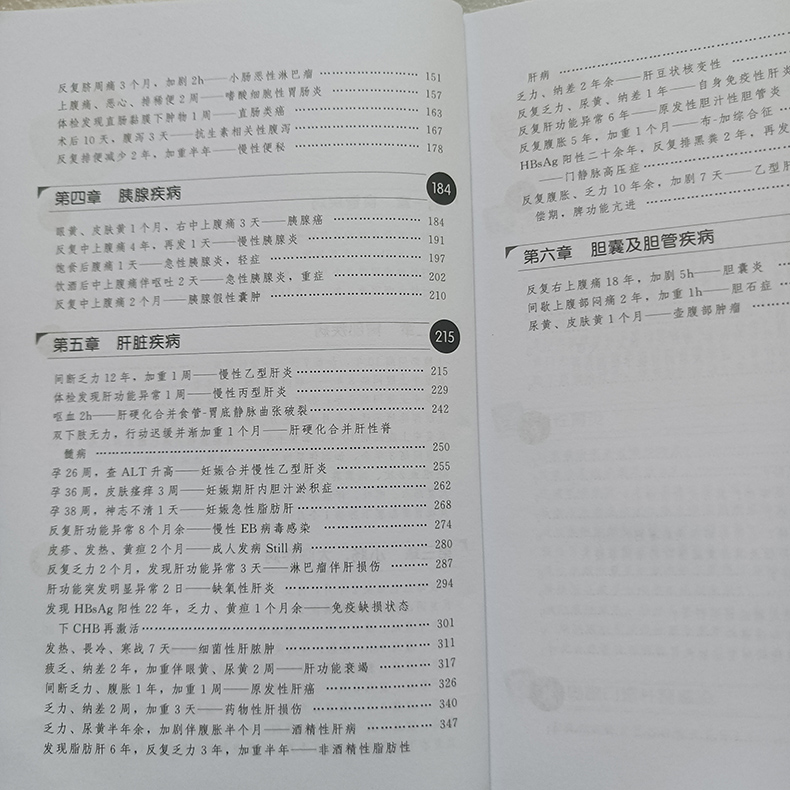 反复脐周痛3个月，加剧2h——小肠恶性淋巴瘤 …… 151
上腹痛、恶心、排稀便2周——嗜酸细胞性胃肠炎 …… 157
体检发现直肠黏膜下肿物1周——直肠类癌 …… 163
术后10天，腹泻3天——抗生素相关性腹泻 …… 167
反复排便减少2年，加重半年——慢性便秘 …… 178
第四章 胰腺疾病 184
眼黄、皮肤黄1个月、右中上腹痛3天——胰腺癌 …… 184
反复中上腹痛4年，再发1天——慢性胰腺炎 …… 191
饱食后腹痛1天——急性胰腺炎，轻症 …… 197
饮酒后中上腹痛伴呕吐2天——急性胰腺炎，重症 …… 202
反复中上腹痛2个月——胰腺假性囊肿 …… 210
第五章 肝脏疾病 215
间断乏力12年，加重1周——慢性乙型肝炎 …… 215
体检发现肝功能异常1周——慢性丙型肝炎 …… 229
呕血2h——肝硬化合并食管-胃底静脉曲张破裂 …… 242
双下肢无力，行动迟缓并渐加重1个月——肝硬化合并肝性脊
髓病 …… 250
孕26周，查ALT升高——妊娠合并慢性乙型肝炎 …… 255
孕36周，皮肤瘙痒3周——妊娠期肝内胆汁淤积症 …… 262
孕38周，神志不清1天——妊娠急性脂肪肝 …… 268
反复肝功能异常8个月余——慢性EB病毒感染 …… 274
皮疹、发热、黄疸2个月——成人发病Still病 …… 280
反复乏力2个月，发现肝功能异常3天——淋巴瘤伴肝损伤 …… 287
肝功能突发明显异常2日——缺氧性肝炎 …… 294
发现HBsAg阳性22年，乏力、黄疸1个月余——免疫缺损状态
下CHB再激活 …… 301
发热、畏冷、寒战7天——细菌性肝脓肿 …… 311
疲乏、纳差2年，加重伴眼黄、尿黄2周——肝功能衰竭 …… 317
间断乏力、腹胀1年，加重1周——原发性肝癌 …… 326
乏力、纳差2周，加重3天——药物性肝损伤 …… 340
乏力、尿黄半年余，加剧伴腹胀半个月——酒精性肝病 …… 347
发现脂肪肝6年，反复乏力3年，加重半年——非酒精性脂肪性
肝病 ……
乏力、纳差2年余——肝豆状核变性 ……
反复乏力、尿黄、纳差1年——自身免疫性肝炎
反复肝功能异常6年——原发性胆汁性胆管炎
反复腹胀5年，加重1个月——布-加综合征
HBsAg阳性二十余年，反复排黑粪2年，再发
——门静脉高压症 ……
反复腹胀、乏力10年余，加剧7天——乙型肝
偿期，脾功能亢进 ……
第六章 胆囊及胆管疾病
反复右上腹痛18年，加剧5h——胆囊炎 ……
间歇上腹部闷痛2年，加重1h——胆石症 ……
尿黄、皮肤黄1个月——壶腹部肿瘤 ……